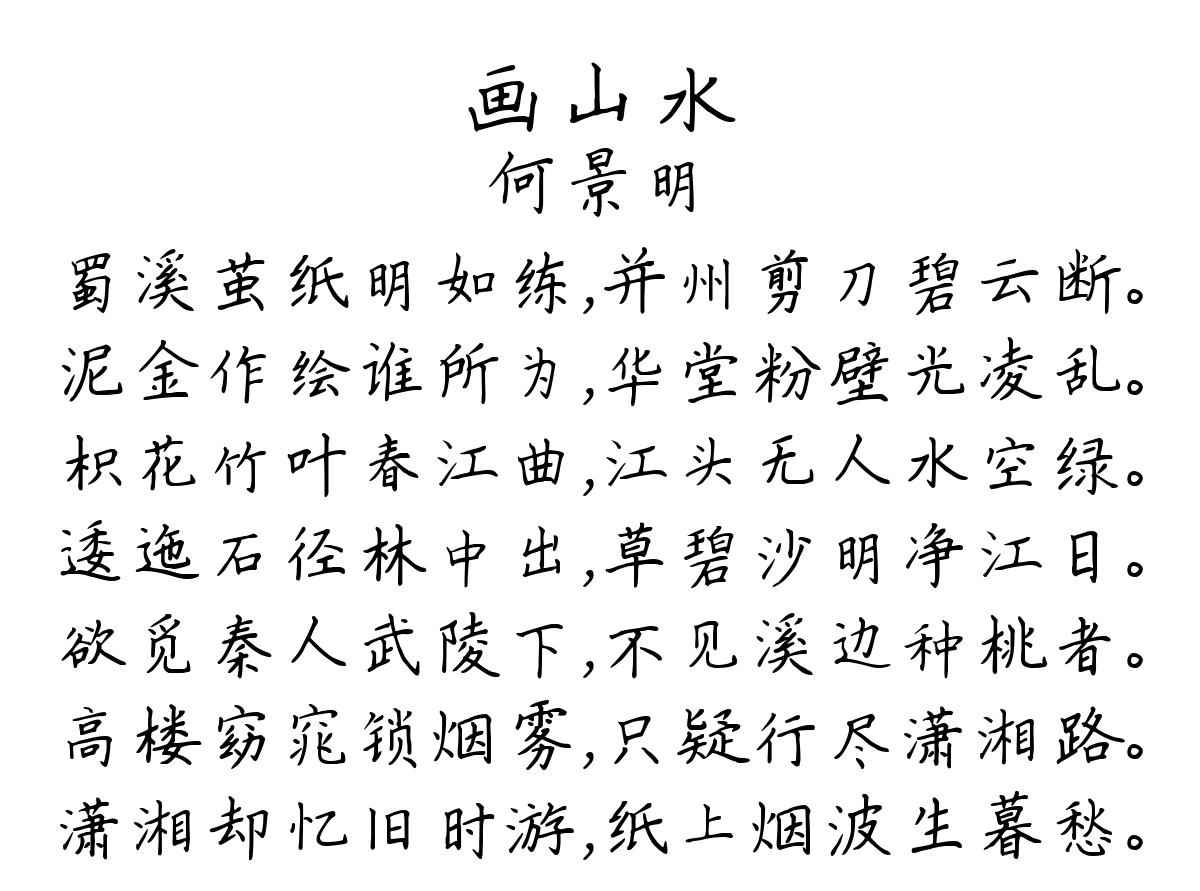 画山水
何景明
蜀溪茧纸明如练,并州剪刀碧云断。
泥金作绘谁所为,华堂粉壁光凌乱。
枳花竹叶春江曲,江头无人水空绿。
逶迤石径林中出,草碧沙明净江日。
欲觅秦人武陵下,不见溪边种桃者。
高楼窈窕锁烟雾,只疑行尽潇湘路。
潇湘却忆旧时游,纸上烟波生暮愁。